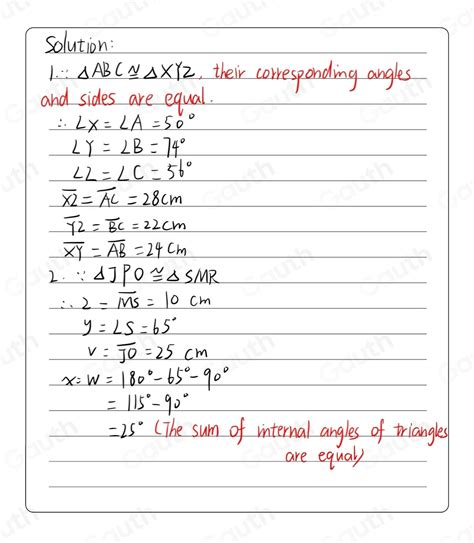 Solution:
1. ∵ △ABC≅△XYZ, their corresponding angles
and sides are equal.
∴ ∠X = ∠A = 50°
∠Y = ∠B = 74°
∠Z = ∠C = 56°
XZ = AC = 28cm
YZ = BC = 22cm
XY = AB = 24cm
2. ∵ △JPO ≅ △SMR
∴ z = MS = 10 cm
y = ∠S = 65°
v = JO = 25 cm
x = w = 180° - 65° - 90°
= 115° - 90°
= 25° (The sum of internal angles of triangles
are equal)